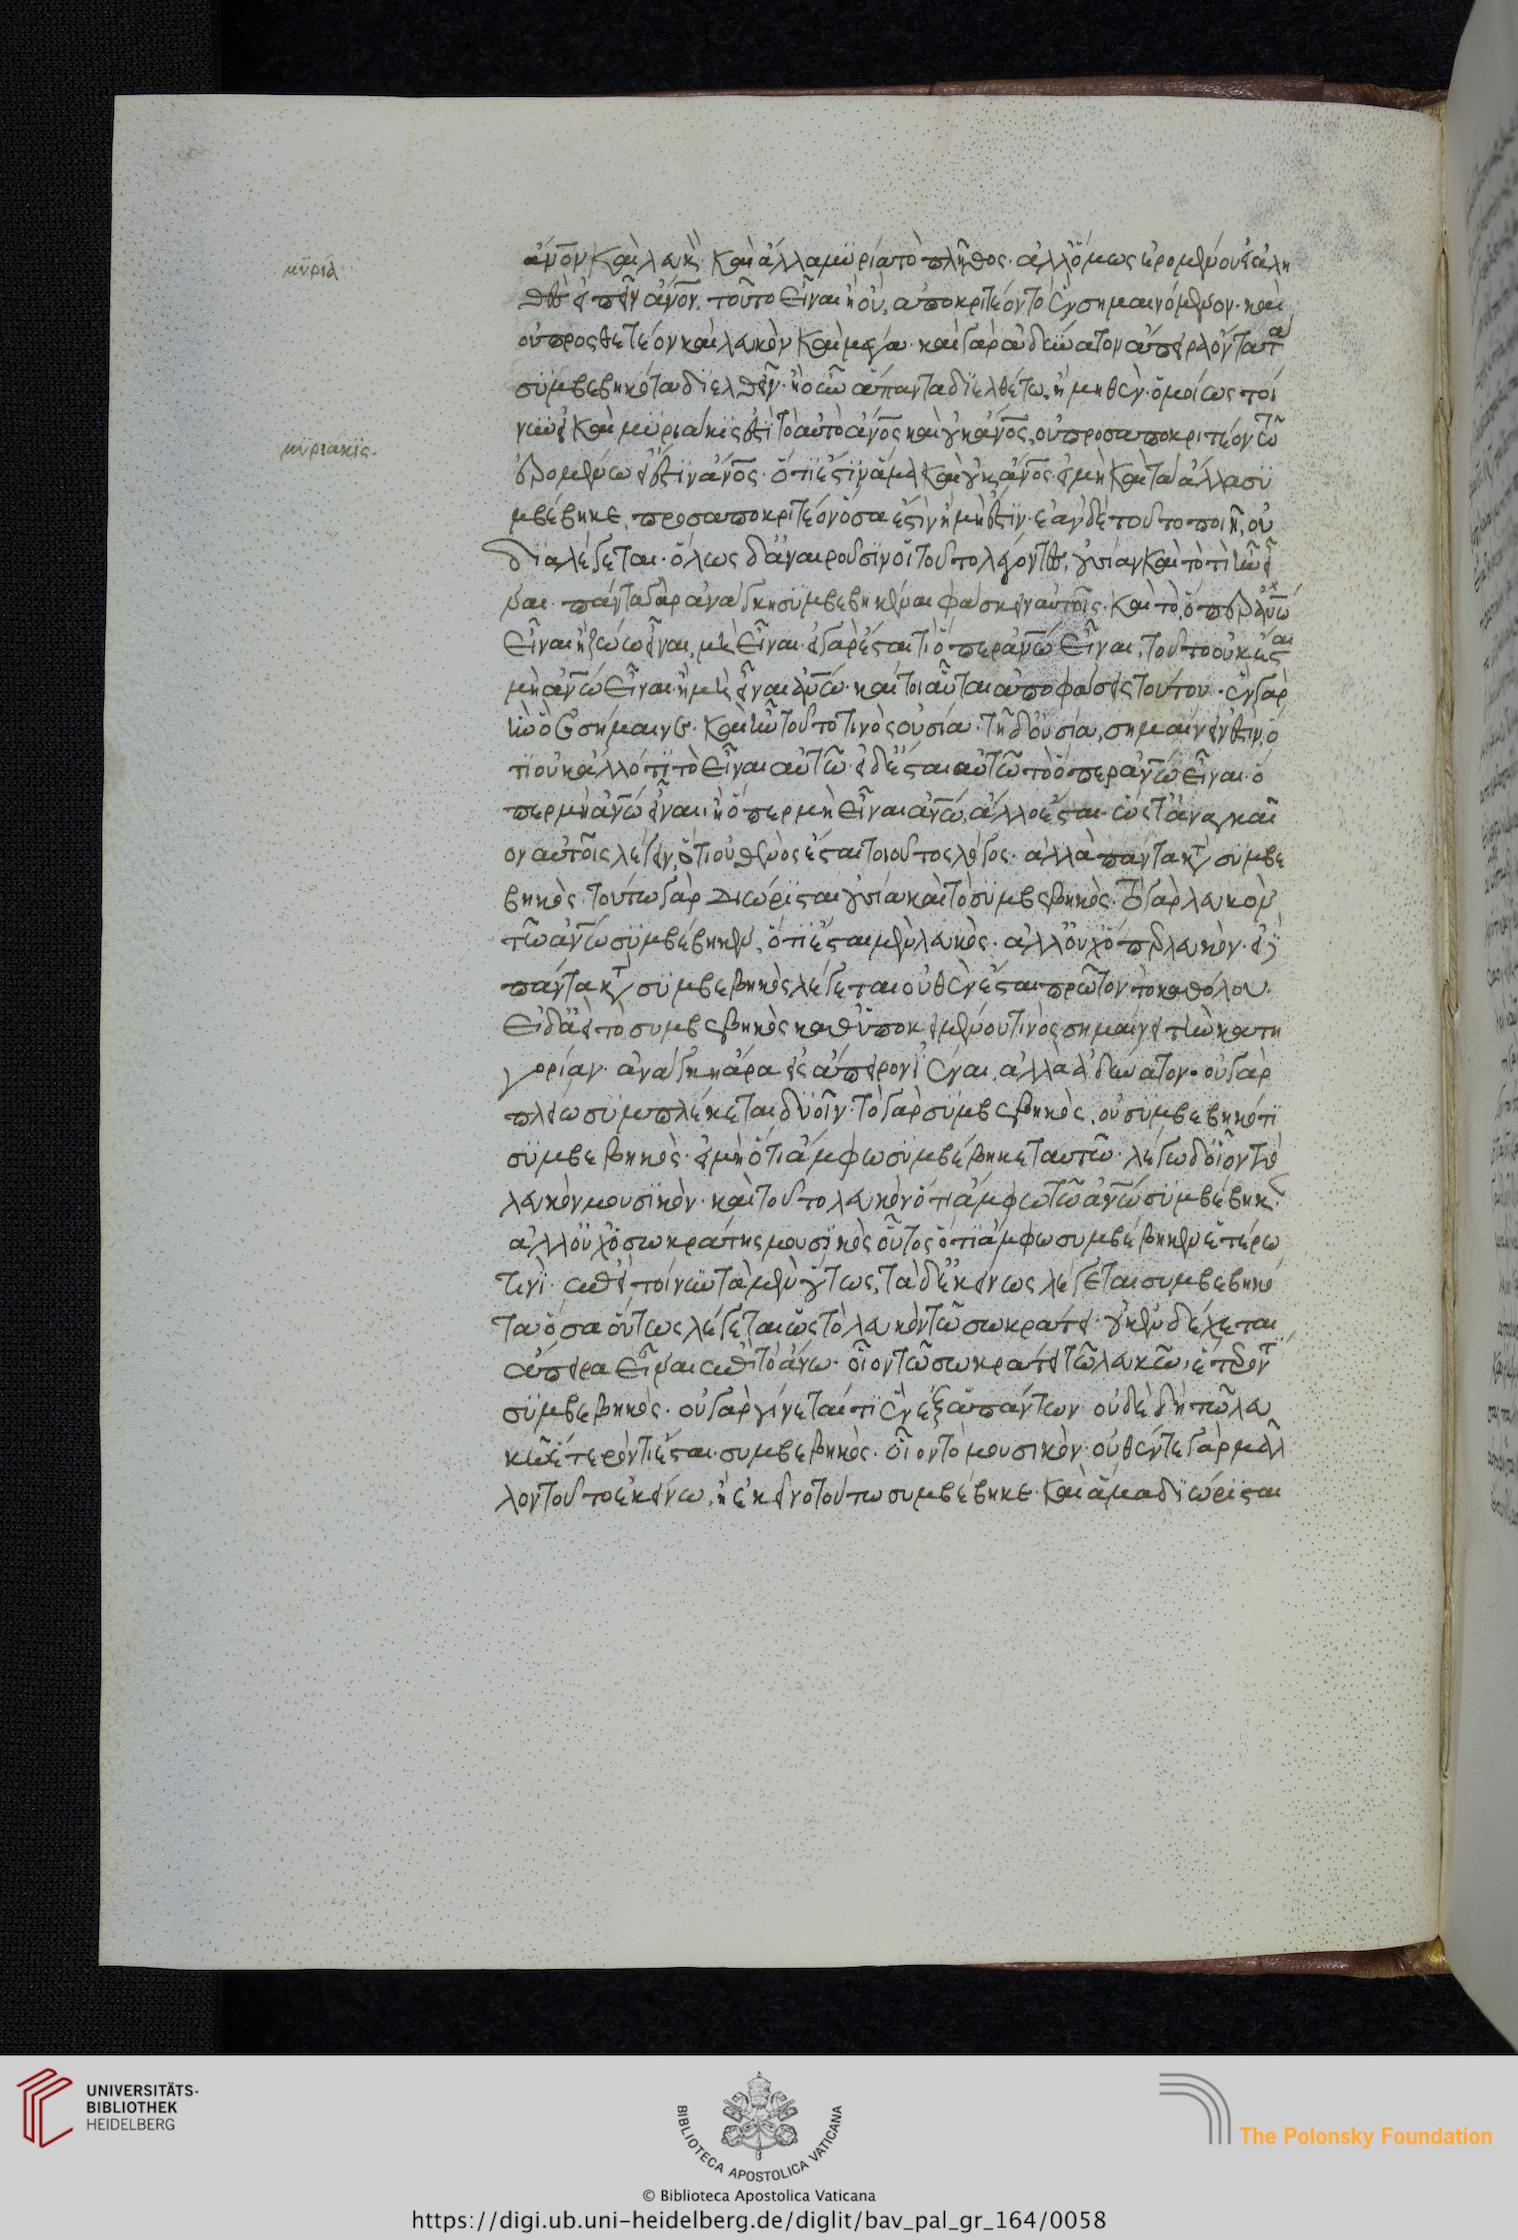 μϋρία
ἄνον καὶ λευκὸν καὶ ἄλλα μϋρία τὸ πλῆθος. ἀλλ' ὅμως ἐρομένου εἰ ἀλη
θὲς εἰπεῖν ἄνον τοῦτο εἶναι ἢ οὔ, ἀποκριτέον τὸ ἓν σημαινόμενον. καὶ
οὐ προσθετέον καὶ λευκὸν καὶ μέγα. καὶ γὰρ ἀδύνατον ἄπειρα ὄντα τὰ
συμβεβηκότα διελθεῖν. ἢ οὖν ἅπαντα διελθέτω, ἢ μηθέν. ὁμοίως τοί
μϋριάκϊς.
νυν εἰ καὶ μϋριάκϊς ἐστὶ τὸ αὐτὸ ἄνος καὶ οὐκ ἄνος, οὐ προσαποκριτέον τῶ
ἐρομένω εἰ ἔστϊν ἄνος. ὅτϊ ἐστὶν ἅμα καὶ οὐκ ἄνος. εἰ μὴ καὶ τἄλλα συ
μβέβηκε, προσαποκριτέον ὅσα ἐστὶν ἢ μὴ ἔστϊν. ἐὰν δὲ τοῦτο ποιῆ, οὐ
διαλέγεται. ὅλως δ' ἀναιροῦσϊν οἱ τοῦτο λέγοντες, οὐσίαν καὶ τὸ τί ἦν εἶ
ναι. πάντα γὰρ ἀνάγκη συμβεβηκέναι φάσκειν αὐτοῖς. καὶ τὸ, ὅπερ ἄνω
εἶναι ἢ ζώω εἶναι, μὴ εἶναι. εἰ γὰρ ἔσται τὶ ὅπερ ἄνω εἶναι, τοῦτο οὐκ ἔσται
μὴ ἄνω εἶναι. ἢ μὴ εἶναι ἄνω. καίτοι αὗται ἀποφάσεις τούτου. ἓν γὰρ
ἦν ὃ ἐσήμαινε. καὶ ἦν τοῦτο τινὸς οὐσία. τὴ δ' οὐσία, σημαίνειν ἐστὶν, ὅ
τι οὐκ ἄλλο τϊ τὸ εἶναι αὐτῶ. εἰ δ' ἔσται αὐτῶ τὸ ὅπερ ἄνω εἶναι. ὅ
περ μὴ ἄνω εἶναι, ἢ ὅπερ μὴ εἶναι ἄνω, ἄλλο ἔσται. ὥστ' ἀναγκαῖ
ον αὐτοῖς λέγειν, ὅτι οὐθενὸς ἔσται τοιοῦτος λόγος. ἀλλὰ πάντα κατὰ συμβε
βηκός. τούτω γὰρ διώρισται οὐσία καὶ τὸ συμβεβηκός. τὸ γὰρ λευκὸν
τῶ ἄνω συμβέβηκεν, ὅτϊ ἔσται μὲν λευκός. ἀλλ' οὐχ ὅπερ λευκόν. εἰ
πάντα κατὰ συμβεβηκὸς λέγεται οὐθὲν ἔσται πρῶτον τὸ καθόλου.
εἰ δ' ἀεὶ τὸ συμβεβηκὸς καθ' ὑποκειμένου τινὸς σημαίνει τὴν κατη
γορίαν. ἀνάγκη ἄρα εἰς ἄπειρον ἰέναι. ἀλλ' ἀδύνατον. οὐ γὰρ
πλείω συμπλέκεται δυοῖν. τὸ γὰρ συμβεβηκὸς, οὐ συμβεβηκότϊ
συμβεβηκός. εἰ μὴ ὅτι ἄμφω συμβέβηκε ταυτῶ. λέγω δ' οἷον τὸ
λευκὸν μουσϊκόν. καὶ τοῦτο λευκὸν ὅτι ἄμφω τῶ ἄνω συμβέβηκε.
ἀλλ' οὐχ ὁ σωκράτης μουσϊκὸς οὕτως ὅτϊ ἄμφω συμβέβηκεν ἑτέρω
τινί. ἐπεὶ τοίνυν τὰ μὲν οὕτως, τὰ δ' ἐκείνως λέγεται συμβεβηκό
τα ὅσα οὕτως λέγεται ὡς τὸ λευκὸν τῶ σωκράτει. οὐκ ἐνδέχεται
ἄπειρα εἶναι ἐπὶ τὸ ἄνω. οἷον τῶ σωκράτει τῶ λευκῶ, ἕτερόν τι
συμβεβηκός. οὐ γὰρ γίνεταί τϊ ἓν ἐξ ἁπάντων οὐδὲ δὴ τῶ λευ
κῶ ἕτερόν τι ἔσται συμβεβηκός. οἷον τὸ μουσικόν. οὐθέν τε γὰρ μᾶλ
λον τοῦτο ἐκείνω, ἢ ἐκεῖνο τούτω συμβέβηκε. καὶ ἅμα διώρϊσται
UNIVERSITÄTS-
BIBLIOTHEK
HEIDELBERG
BIBLIOTECA APOSTOLICA VATICANA
The Polonsky Foundation
© Biblioteca Apostolica Vaticana
https://digi.ub.uni-heidelberg.de/diglit/bav_pal_gr_164/0058